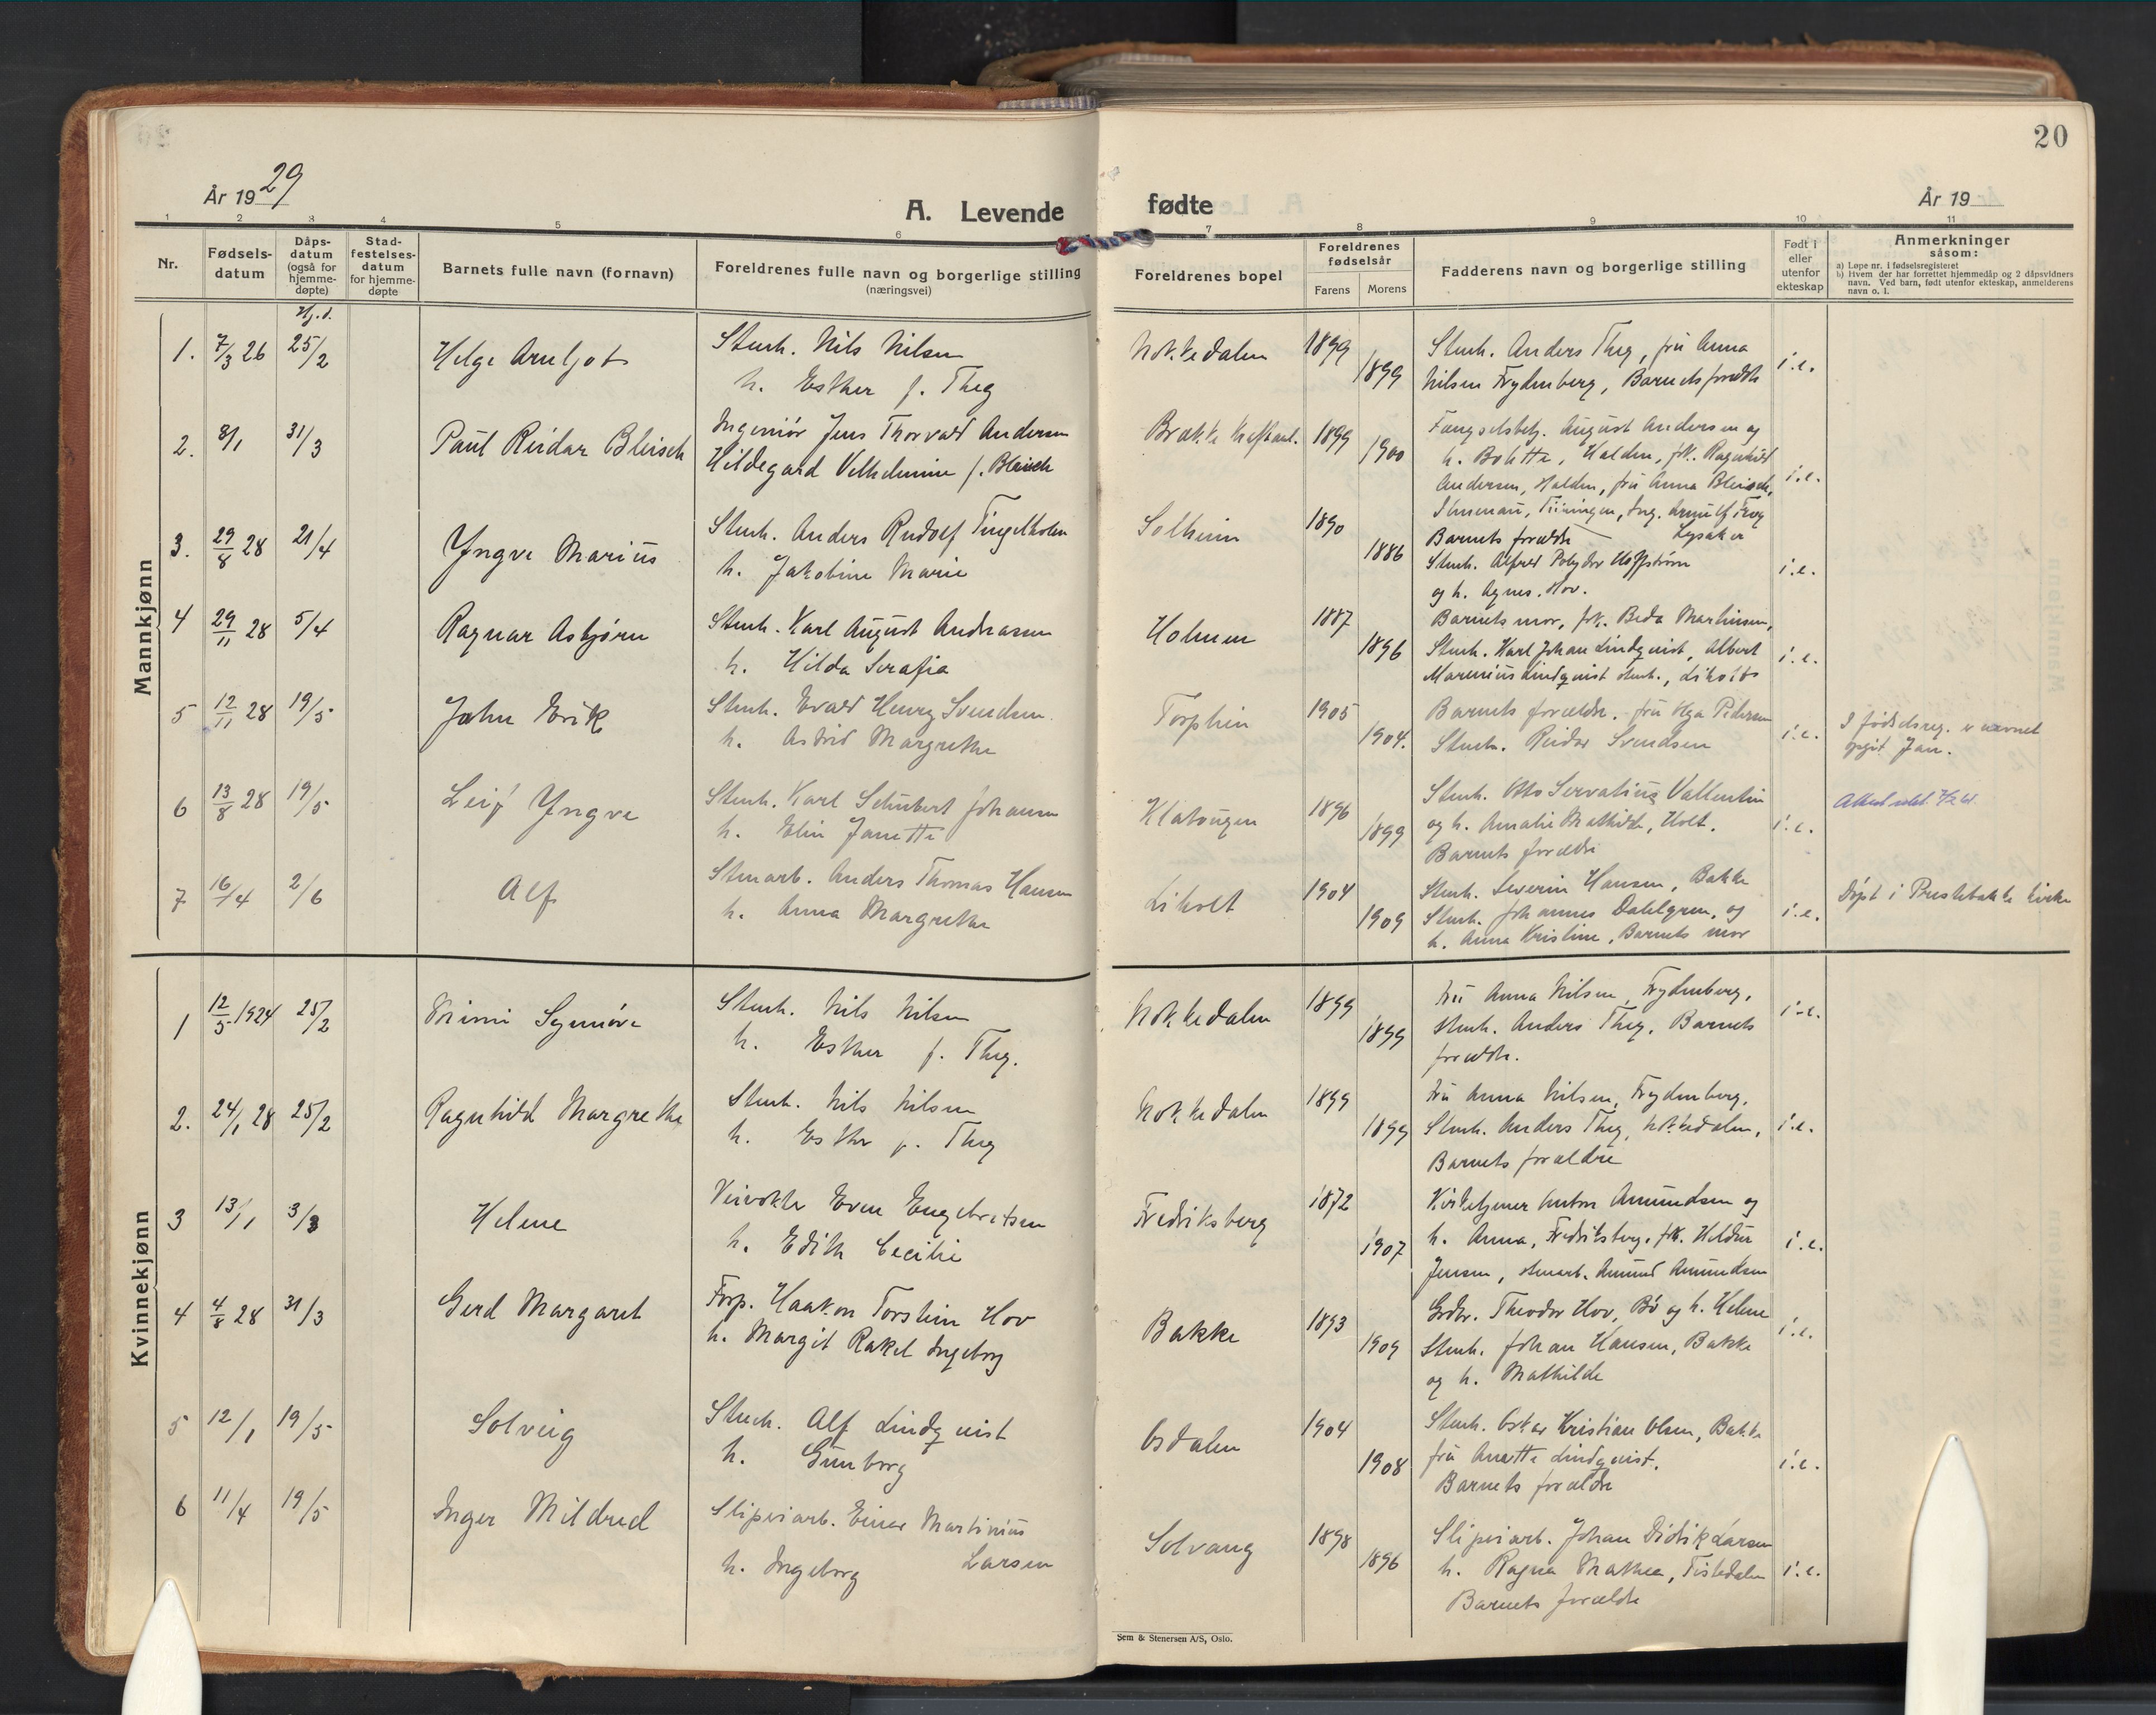 20
År 1929
A. Levende
fødte
År 19
1 2 3 4 5 6 7 8 9 10 11
Nr.
Fødsels-
datum
Dåps-
datum
(også for
hjemme-
døpte)
Stad-
festelses-
datum
for hjemme-
døpte
Barnets fulle navn (fornavn)
Foreldrenes fulle navn og borgerlige stilling
(næringsvei)
Foreldrenes bopel
Foreldrenes
fødselsår
Farens Morens
Fadderens navn og borgerlige stilling
Født i
eller
utenfor
ekteskap
Anmerkninger
såsom:
a) Løpe nr. i fødselsregisteret
b) Hvem der har forrettet hjemmedåp og 2 dåpsvidners
navn. Ved barn, født utenfor ekteskap, anmelderens
navn o. l.
Mannkjønn
Hj.d.
1. 7/3 26 25/2 Helge Arneljot
Stenh. Nils Nilsen
h. Esther f. Theg
Nokkedalen 1899 1899
Stenh. Anders Theg, fru Anna
Nilsen Frydenberg, Barnets foreldre
i.e.
2. 8/1 31/3 Paul Reidar Bleisch
Ingeniør Jens Thorvald Andersen
Hildegard Vilhelmine f. Bleisch
Brekke 1899 1900
Fængselsbetj. August Andersen og
h. Bolette, Halden, frk. Ragnhild
Andersen, Halden, fru Anna Bleisch,
Ilmenau, Ing.
Lysaker
i.e.
3. 29/8 28 21/4 Yngve Marius
Stenh. Anders Rudolf Tingelholm
h. Jakobine Marie
Solheim 1890 1886
Barnets forældre
Stenh. Alfred Polydor Hoffstrøm
og h. Agnes. Hov.
i.e.
4 29/11 28 5/4 Ragnar Asbjørn
Stenh. Karl August Andreassen
h. Hilda Serafia
Holmen 1887 1896
Barnets mor, frk. Beda Martinsen,
Stenh. Karl Johan Lindqvist, Albert
Marenius Lindqvist stenh., Liholt
i.e.
5 12/11 28 19/5 John Erik
Stenh. Evald Henry Svendsen.
h. Astrid Margrethe
Torpheim 1905 1904.
Barnets forældre. fru Olga Pedersen
Stenh. Reidar Svendsen
i.e.
I fødselsreg. er navnet
opgit Jan.
6 13/8 28 19/5 Leif Yngve
Stenh. Karl Schubert Johansen
h. Elin Janette
Klatougen 1896 1899
Stenh. Otto Servatius Vallentin
og h. Amalie Mathilde, Holt.
Barnets forældre
i.e.
7 16/4 2/6 Alf
Stenarb. Anders Thomas Hansen
h. Anna Margrethe
Liholt 1904 1909
Stenh. Severin Hansen, Bakke
Stenh. Johannes Dahlgren, og
h. Anna Kristine, Barnets mor
i.e.
Døpt i Prestebakke kirke
Kvinnekjønn
1 12/5 1924 25/2 Synnøve
Stenh. Nils Nilsen
h. Esther f. Theg.
Nokkedalen 1899 1899
Fru Anna Nilsen, Frydenberg,
stenh. Anders Theg, Barnets
forældre.
i.e.
2. 24/1 28 25/2 Ragnhild Margrethe
Stenh. Nils Nilsen
h. Esther f. Theg
Nokkedalen 1899 1899
Fru Anna Nilsen, Frydenberg,
Stenh. Anders Theg, Nokkedalen,
Barnets forældre
i.e.
3 13/1 3/3 Helene
Veivokter Even Engebretsen
h. Edith Cecilie
Fredriksberg 1872 1907
Kirketjener Anton Amundsen og
h. Anna, Fredriksberg, frk. Heldur
Jensen, stenarb. Amund Amundsen
i.e.
4 4/8 28 31/3 Gerd Margaret
Forp. Haakon Torstein Hov
h. Margit Rakel Ingeborg
Bakke 1893 1909
Grdbr. Theodor Hov, Bø og h. Helene
Stenh. Johan Hansen, Bakke
og h. Mathilde
i.e.
5 12/1 19/5 Solveig
Stenh. Alf Lindqvist
h. Gunborg
Osdalen 1904 1908
Stenh. Oskar Kristian Olsen, Bakke
fru Anette Lindqvist.
Barnets forældre
i.e.
6 11/4 19/5 Inger Mildred
Sliperiarb. Einar Martinius
h. Ingeborg Larsen
Solvang 1898 1896
Sliperiarb. Johan Didrik Larsen
h. Ragna Mathea, Tistedalen
Barnets forældre
i.e.
Sem & Stenersen A/S, Oslo.